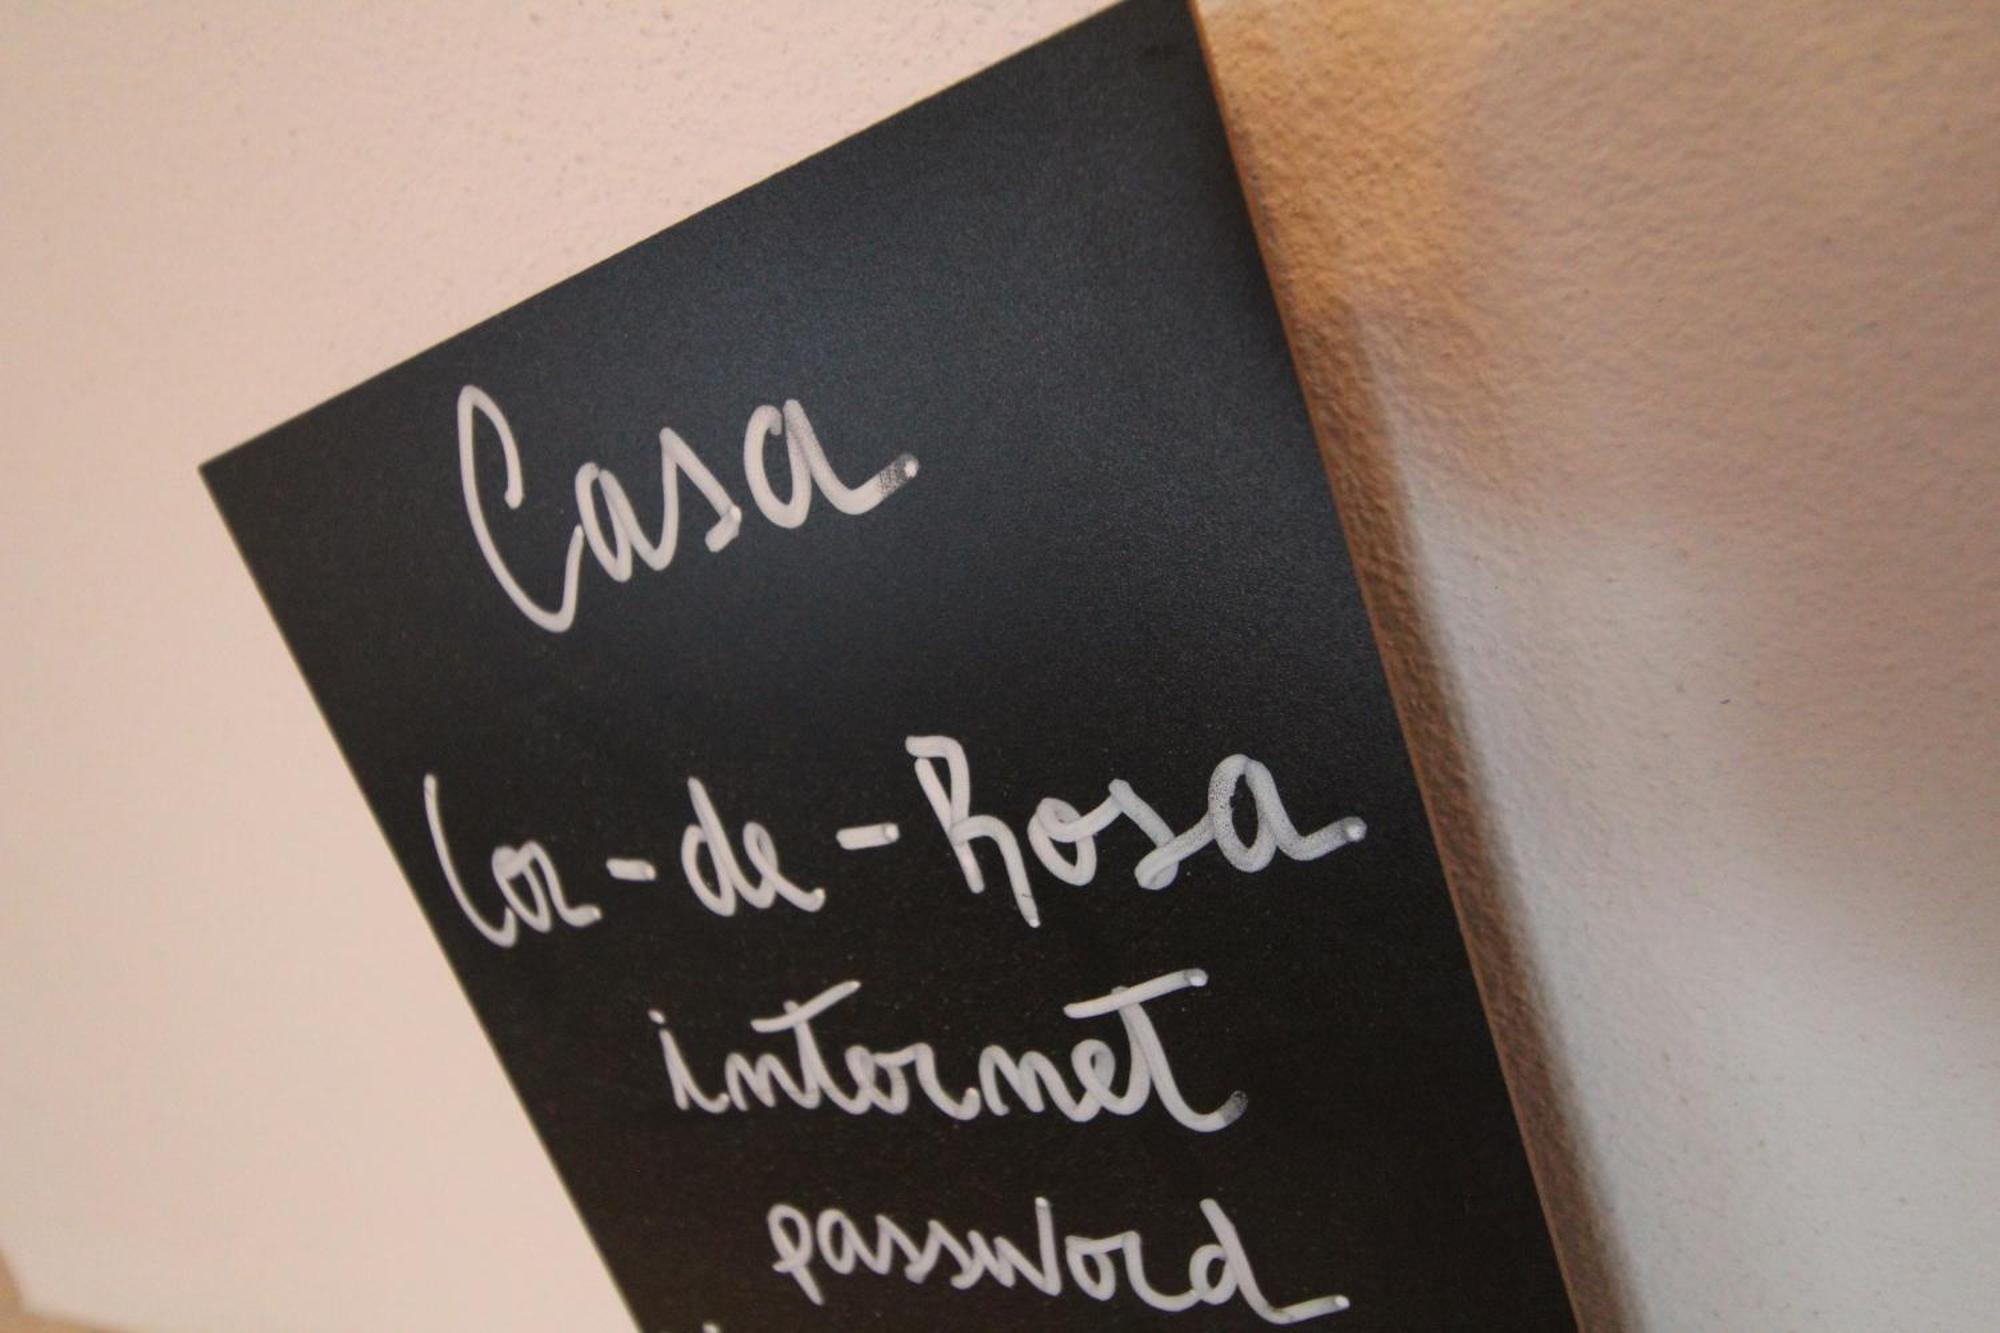 Casa
Cor-de-Rosa
internet
password